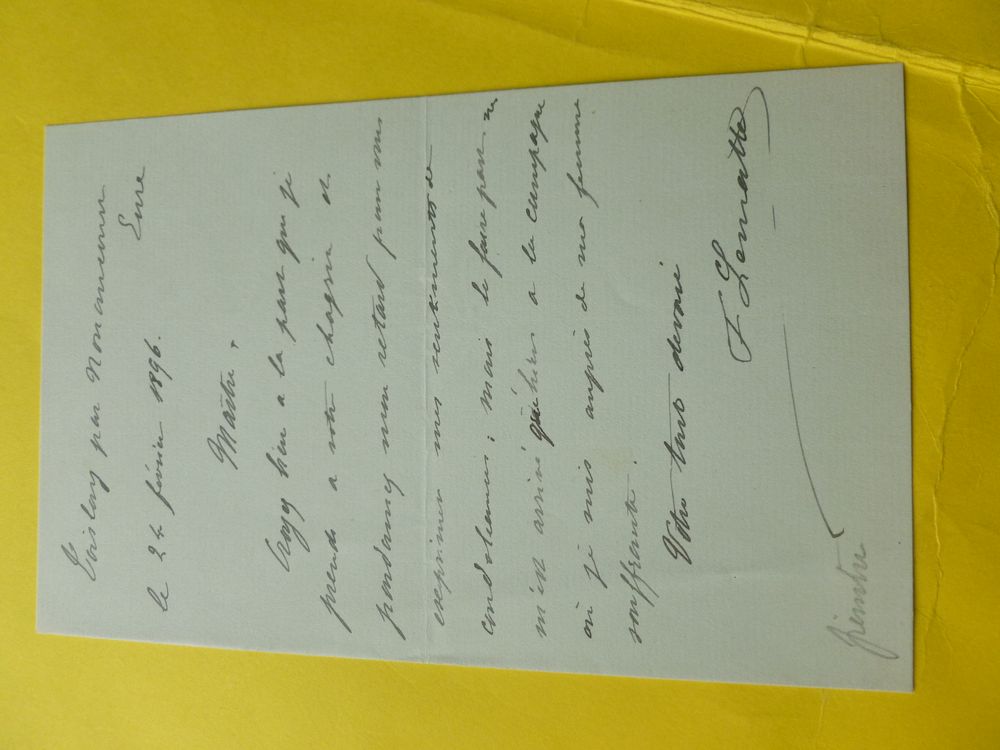 par Nonancourt
Eure
le 24 février 1896.
Maître,
Croyez bien a la part que je
prends a votre chagrin et
pardonnez mon retard pour vous
exprimer mes sentiments de
condoleances ; mais le faire part ne
m'est arrivé qu'hier a la campagne
où je suis auprès de ma femme
souffrante.
Votre tout dévoué
F Lematte
peintre